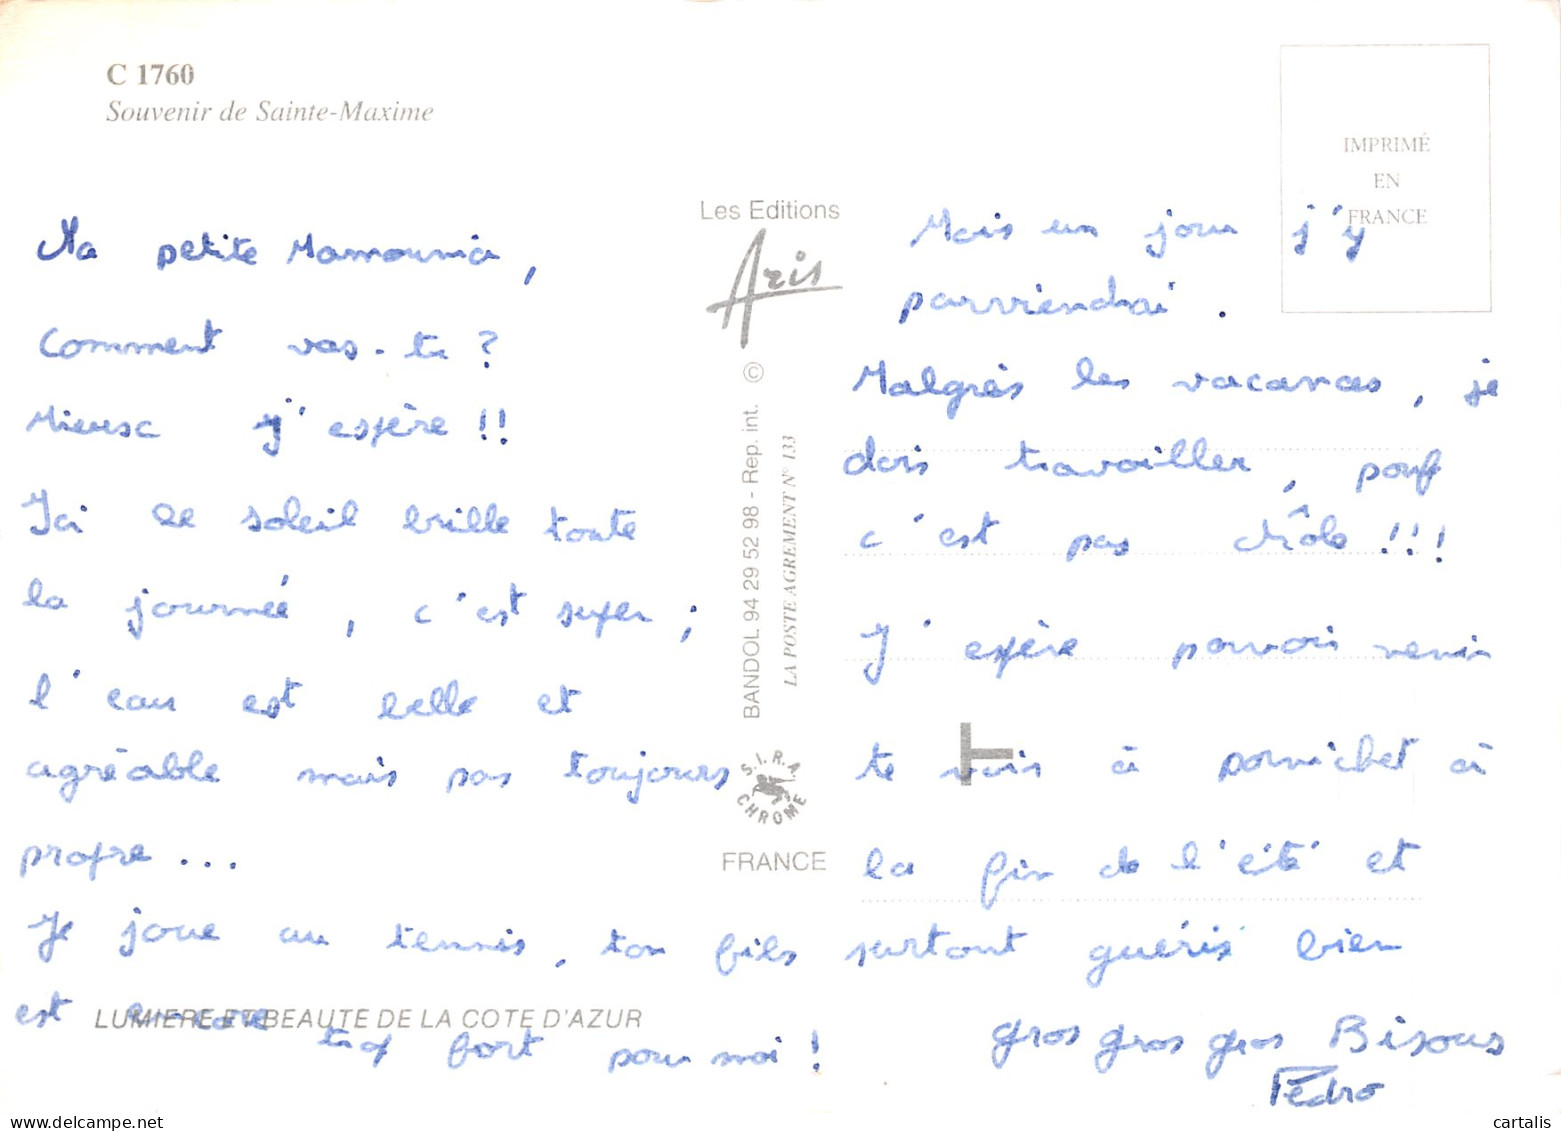 C 1760
Souvenir de Sainte-Maxime
Ma petite Mamounia,
Comment vas-tu ?
Mieux j'espère !!
Ici le soleil brille toute
la journée, c'est super ;
l'eau est belle et
agréable mais pas toujours
propre ...
Je joue au tennis, ton fils
est encore
trop fort pour moi !
LUMIERE ET BEAUTE DE LA COTE D'AZUR
Les Editions
Aris
BANDOL 94 29 52 98 - Rep. int. ©
LA POSTE AGREMENT N° 133
S.I.R.A.
CHROME
FRANCE
IMPRIMÉ
EN
FRANCE
Mais un jour j'y
parviendrai.
Malgrès les vacances, je
dois travailler, pouf
c'est pas drôle !!!
J'espère pouvoir venir
te voir à pornichet à
la fin de l'été et
surtout guéris bien
gros gros gros Bisous
Pédro
cartalis
www.delcampe.net